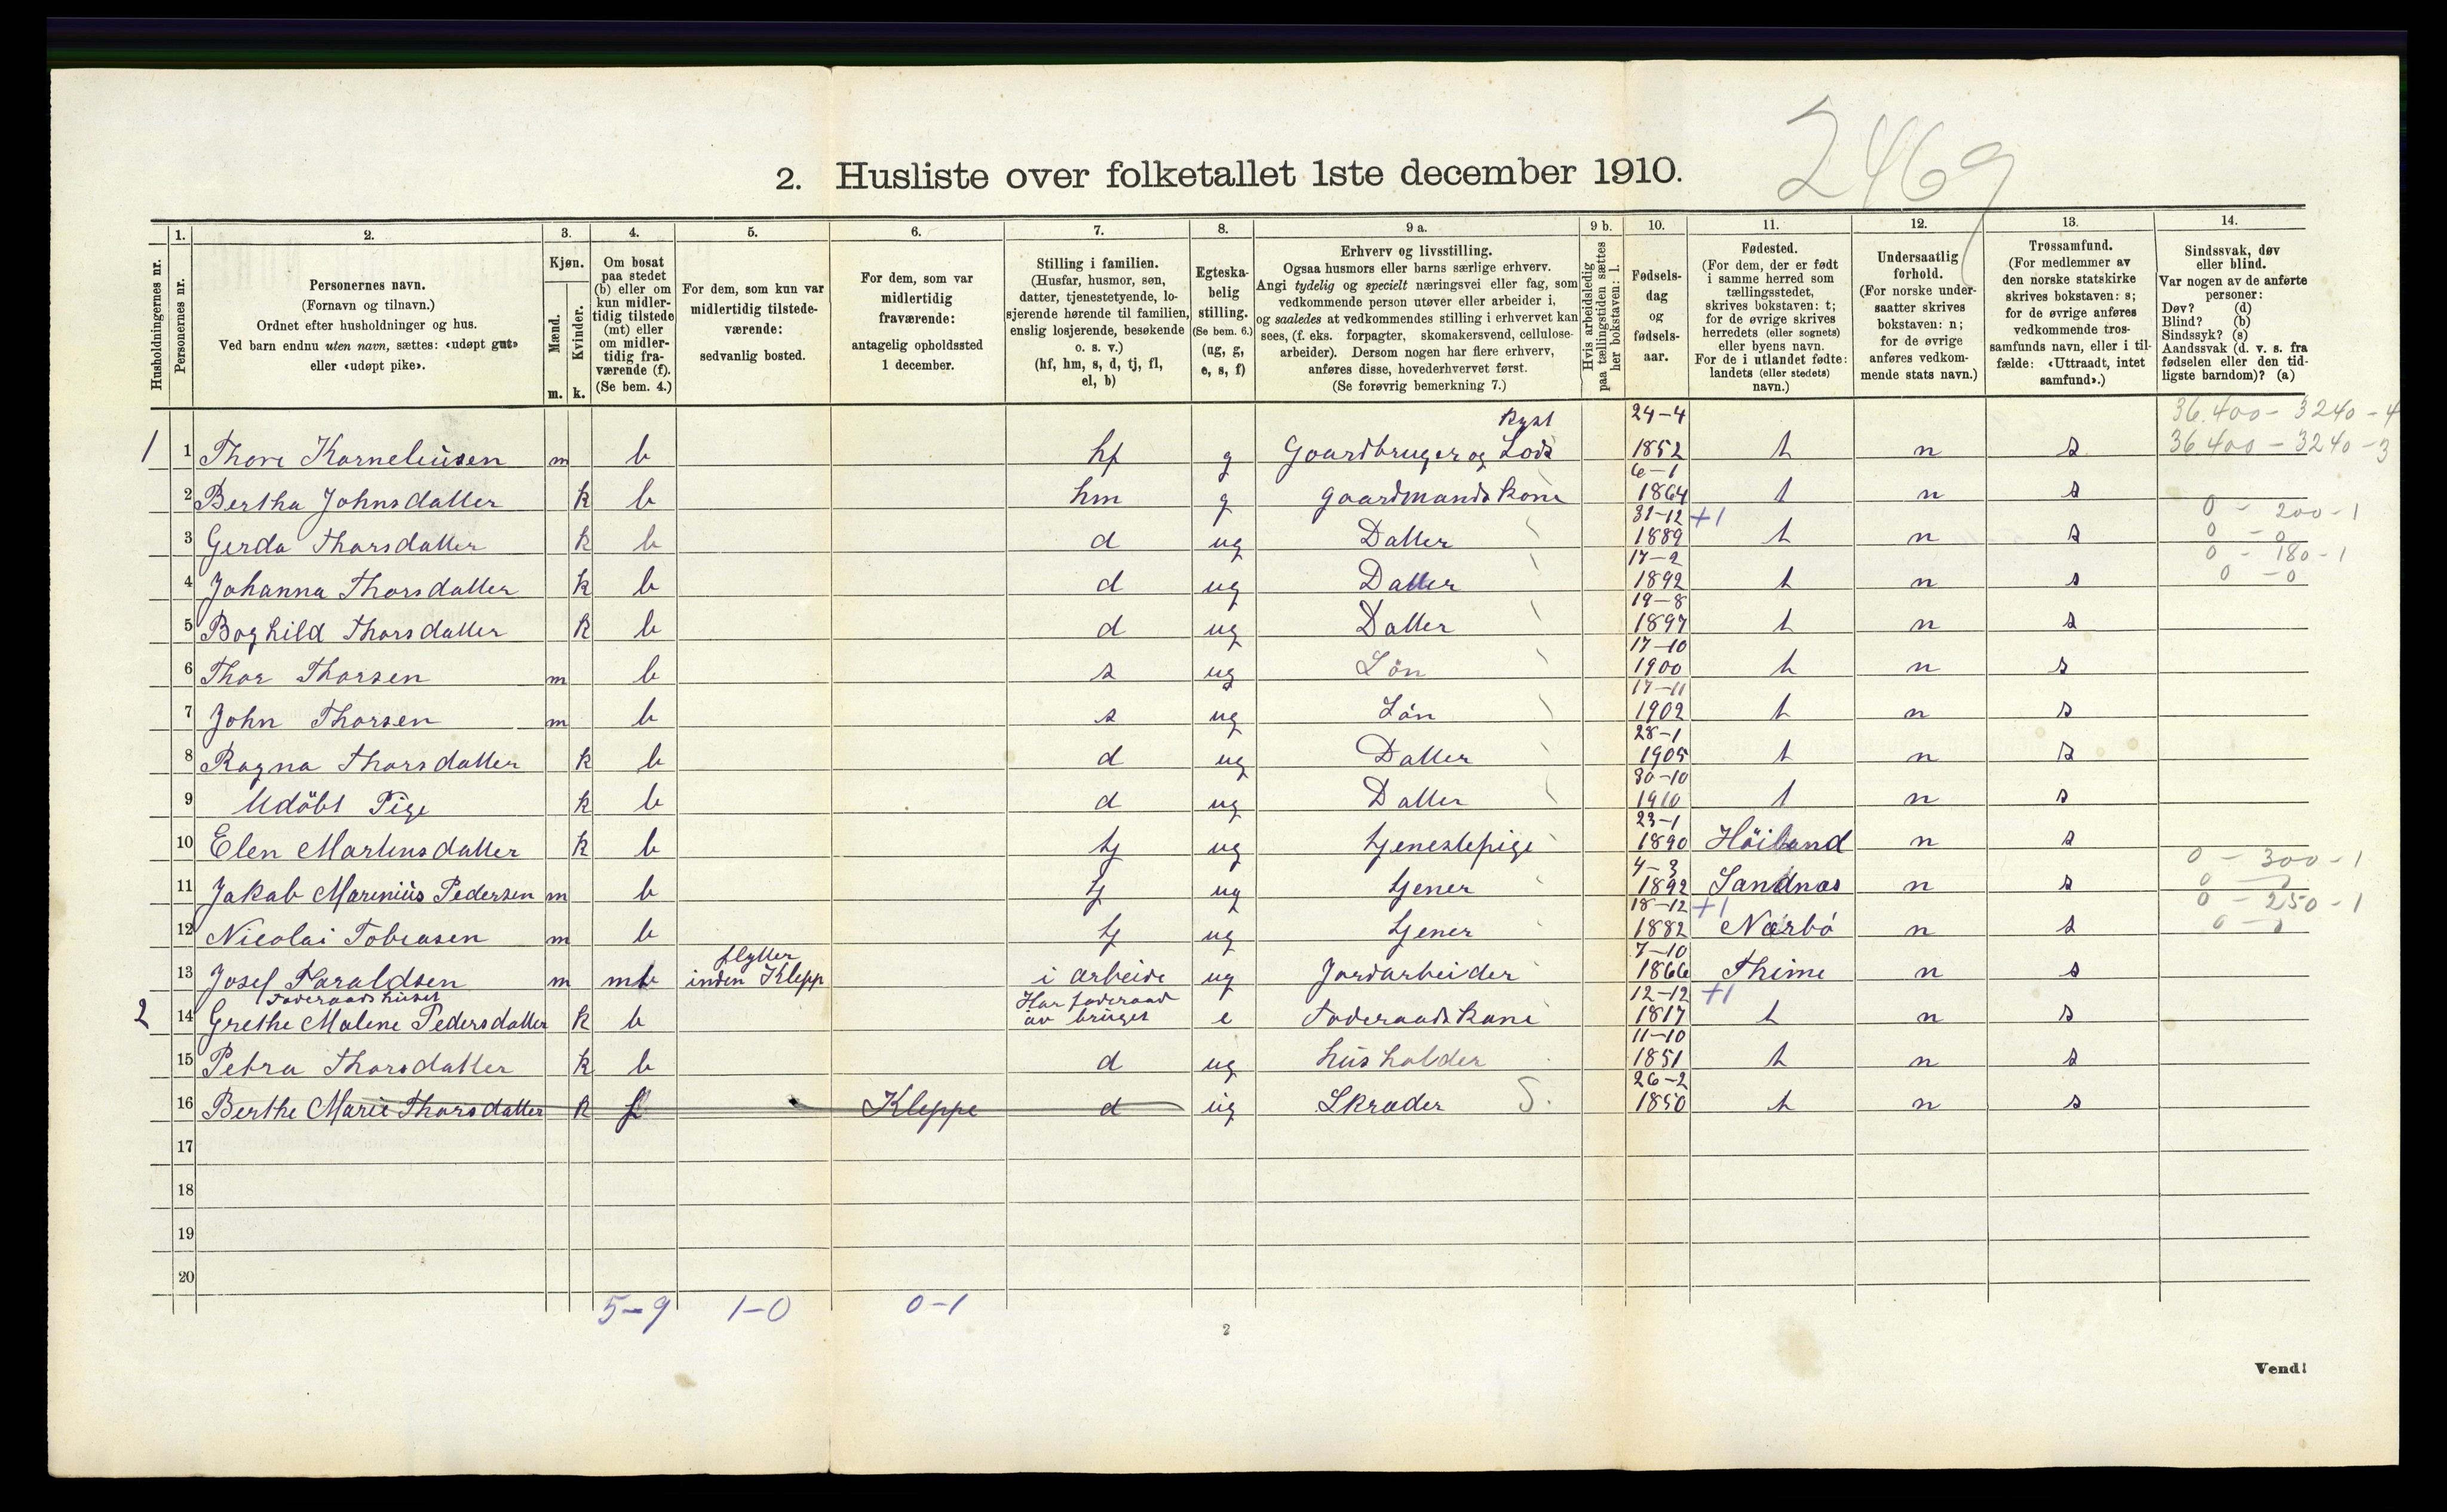 2469
2. Husliste over folketallet 1ste december 1910.
Husholdningernes nr.
1. Personernes nr.
2. Personernes navn.
(Fornavn og tilnavn.)
Ordnet efter husholdninger og hus.
Ved barn endnu uten navn, sættes: «udøpt gut»
eller «udøpt pike».
3. Kjøn.
Mænd. m.
Kvinder. k.
4. Om bosat
paa stedet
(b) eller om
kun midler-
tidig tilstede
(mt) eller
om midler-
tidig fra-
værende (f).
(Se bem. 4.)
5. For dem, som kun var
midlertidig tilstede-
værende:
sedvanlig bosted.
6. For dem, som var
midlertidig
fraværende:
antagelig opholdssted
1 december.
7. Stilling i familien.
(Husfar, husmor, søn,
datter, tjenestetyende, lo-
sjerende hørende til familien,
enslig losjerende, besøkende
o. s. v.)
(hf, hm, s, d, tj, fl,
el, b)
8. Egteska-
belig
stilling.
(Se bem. 6.)
(ug, g,
e, s, f)
9 a. Erhverv og livsstilling.
Ogsaa husmors eller barns særlige erhverv.
Angi tydelig og specielt næringsvei eller fag, som
vedkommende person utøver eller arbeider i,
og saaledes at vedkommendes stilling i erhvervet kan
sees, (f. eks. forpagter, skomakersvend, cellulose-
arbeider). Dersom nogen har flere erhverv,
anføres disse, hovederhvervet først.
(Se forøvrig bemerkning 7.)
9 b. Hvis arbeidsledig
paa tællingstiden sættes
her bokstaven: l.
10. Fødsels-
dag
og
fødsels-
aar.
11. Fødested.
(For dem, der er født
i samme herred som
tællingsstedet,
skrives bokstaven: t;
for de øvrige skrives
herredets (eller sognets)
eller byens navn.
For de i utlandet fødte:
landets (eller stedets)
navn.)
12. Undersaatlig
forhold.
(For norske under-
saatter skrives
bokstaven: n;
for de øvrige
anføres vedkom-
mende stats navn.)
13. Trossamfund.
(For medlemmer av
den norske statskirke
skrives bokstaven: s;
for de øvrige anføres
vedkommende tros-
samfunds navn, eller i til-
fælde: «Uttraadt, intet
samfund».)
14. Sindssvak, døv
eller blind.
Var nogen av de anførte
personer:
Døv? (d)
Blind? (b)
Sindssyk? (s)
Aandssvak (d. v. s. fra
fødselen eller den tid-
ligste barndom)? (a)
Kyst 24-4 36.400 - 3240 - 4
1 1 Thore Korneliusen m b hf g Gaardbruger og Lods 1852 t n s 36400 - 3240 - 3
6-1
2 Bertha Johnsdatter k b hm g gaardmandskone 1864 t n s
31-12 +1 0 - 200 - 1
3 Gerda Thorsdatter k b d ug Datter 1889 t n s 0 - 0
17-2 0 - 180 - 1
4 Johanna Thorsdatter k b d ug Datter 1892 t n s 0 - 0
19-8
5 Boghild Thorsdatter k b d ug Datter 1897 t n s
17-10
6 Thor Thorsen m b s ug Sön 1900 t n s
17-11
7 John Thorsen m b s ug Sön 1902 t n s
28-1
8 Ragna Thorsdatter k b d ug Datter 1905 t n s
30-10
9 Udöbt Pige k b d ug Datter 1910 t n s
23-1
10 Elen Martinsdatter k b tj ug tjenestepige 1890 Höiland n s
4-3 0 - 300 - 1
11 Jakob Marenius Pedersen m b tj ug tjener 1892 Sandnes n s
18-12 +1 0 - 250 - 1
12 Nicolai Tobiasen m b tj ug tjener 1882 Nærbö n s
flytter 7-10
13 Josef Haraldsen m mt inden Klepp i arbeide ug Jordarbeider 1866 Thime n s
Foderaadshuset Har foderaad 12-12 +1
2 14 Grethe Malene Pedersdatter k b av bruget e Foderaadskone 1817 t n s
11-10
15 Petra Thorsdatter k b d ug husholder 1851 t n s
26-2
16 Berthe Marie Thorsdatter k f Kleppe d ug Skræder S. 1850 t n s
17
18
19
20
5-9 1-0 0-1
2
Vend!